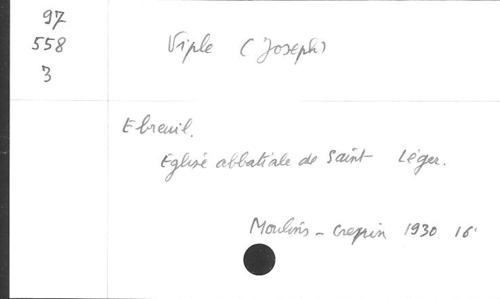 97
558
3
Viple (Joseph)
Ebreuil.
Eglise abbatiale de Saint-Léger.
Moulins - Crepin 1930 16°